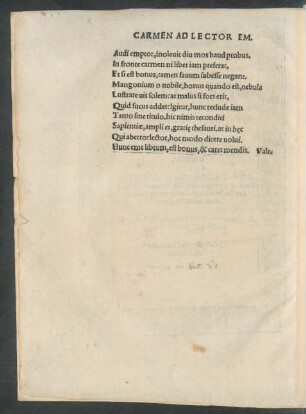 CARMEN AD LECTOR EM.
Audi emptor, inoleuit diu mos haud probus,
In fronte carmen ni liber iam præferat,
Et si est bonus, tamen fauum subesse negant.
Mangonium o nobile, bonus quando est, nebula
Lustrare uis solem: at malus si fors erit,
Quid fucus addet: Igitur, hunc reclude iam
Tanto sine titulo, hic nimis reconditi
Sapientiæ, ampli et, gratię thesauri, at in hęc
Qui aberro: lector, hoc modo dicere uolui.
Hunc eme librum, est bonus, & caret mendis. Vale.